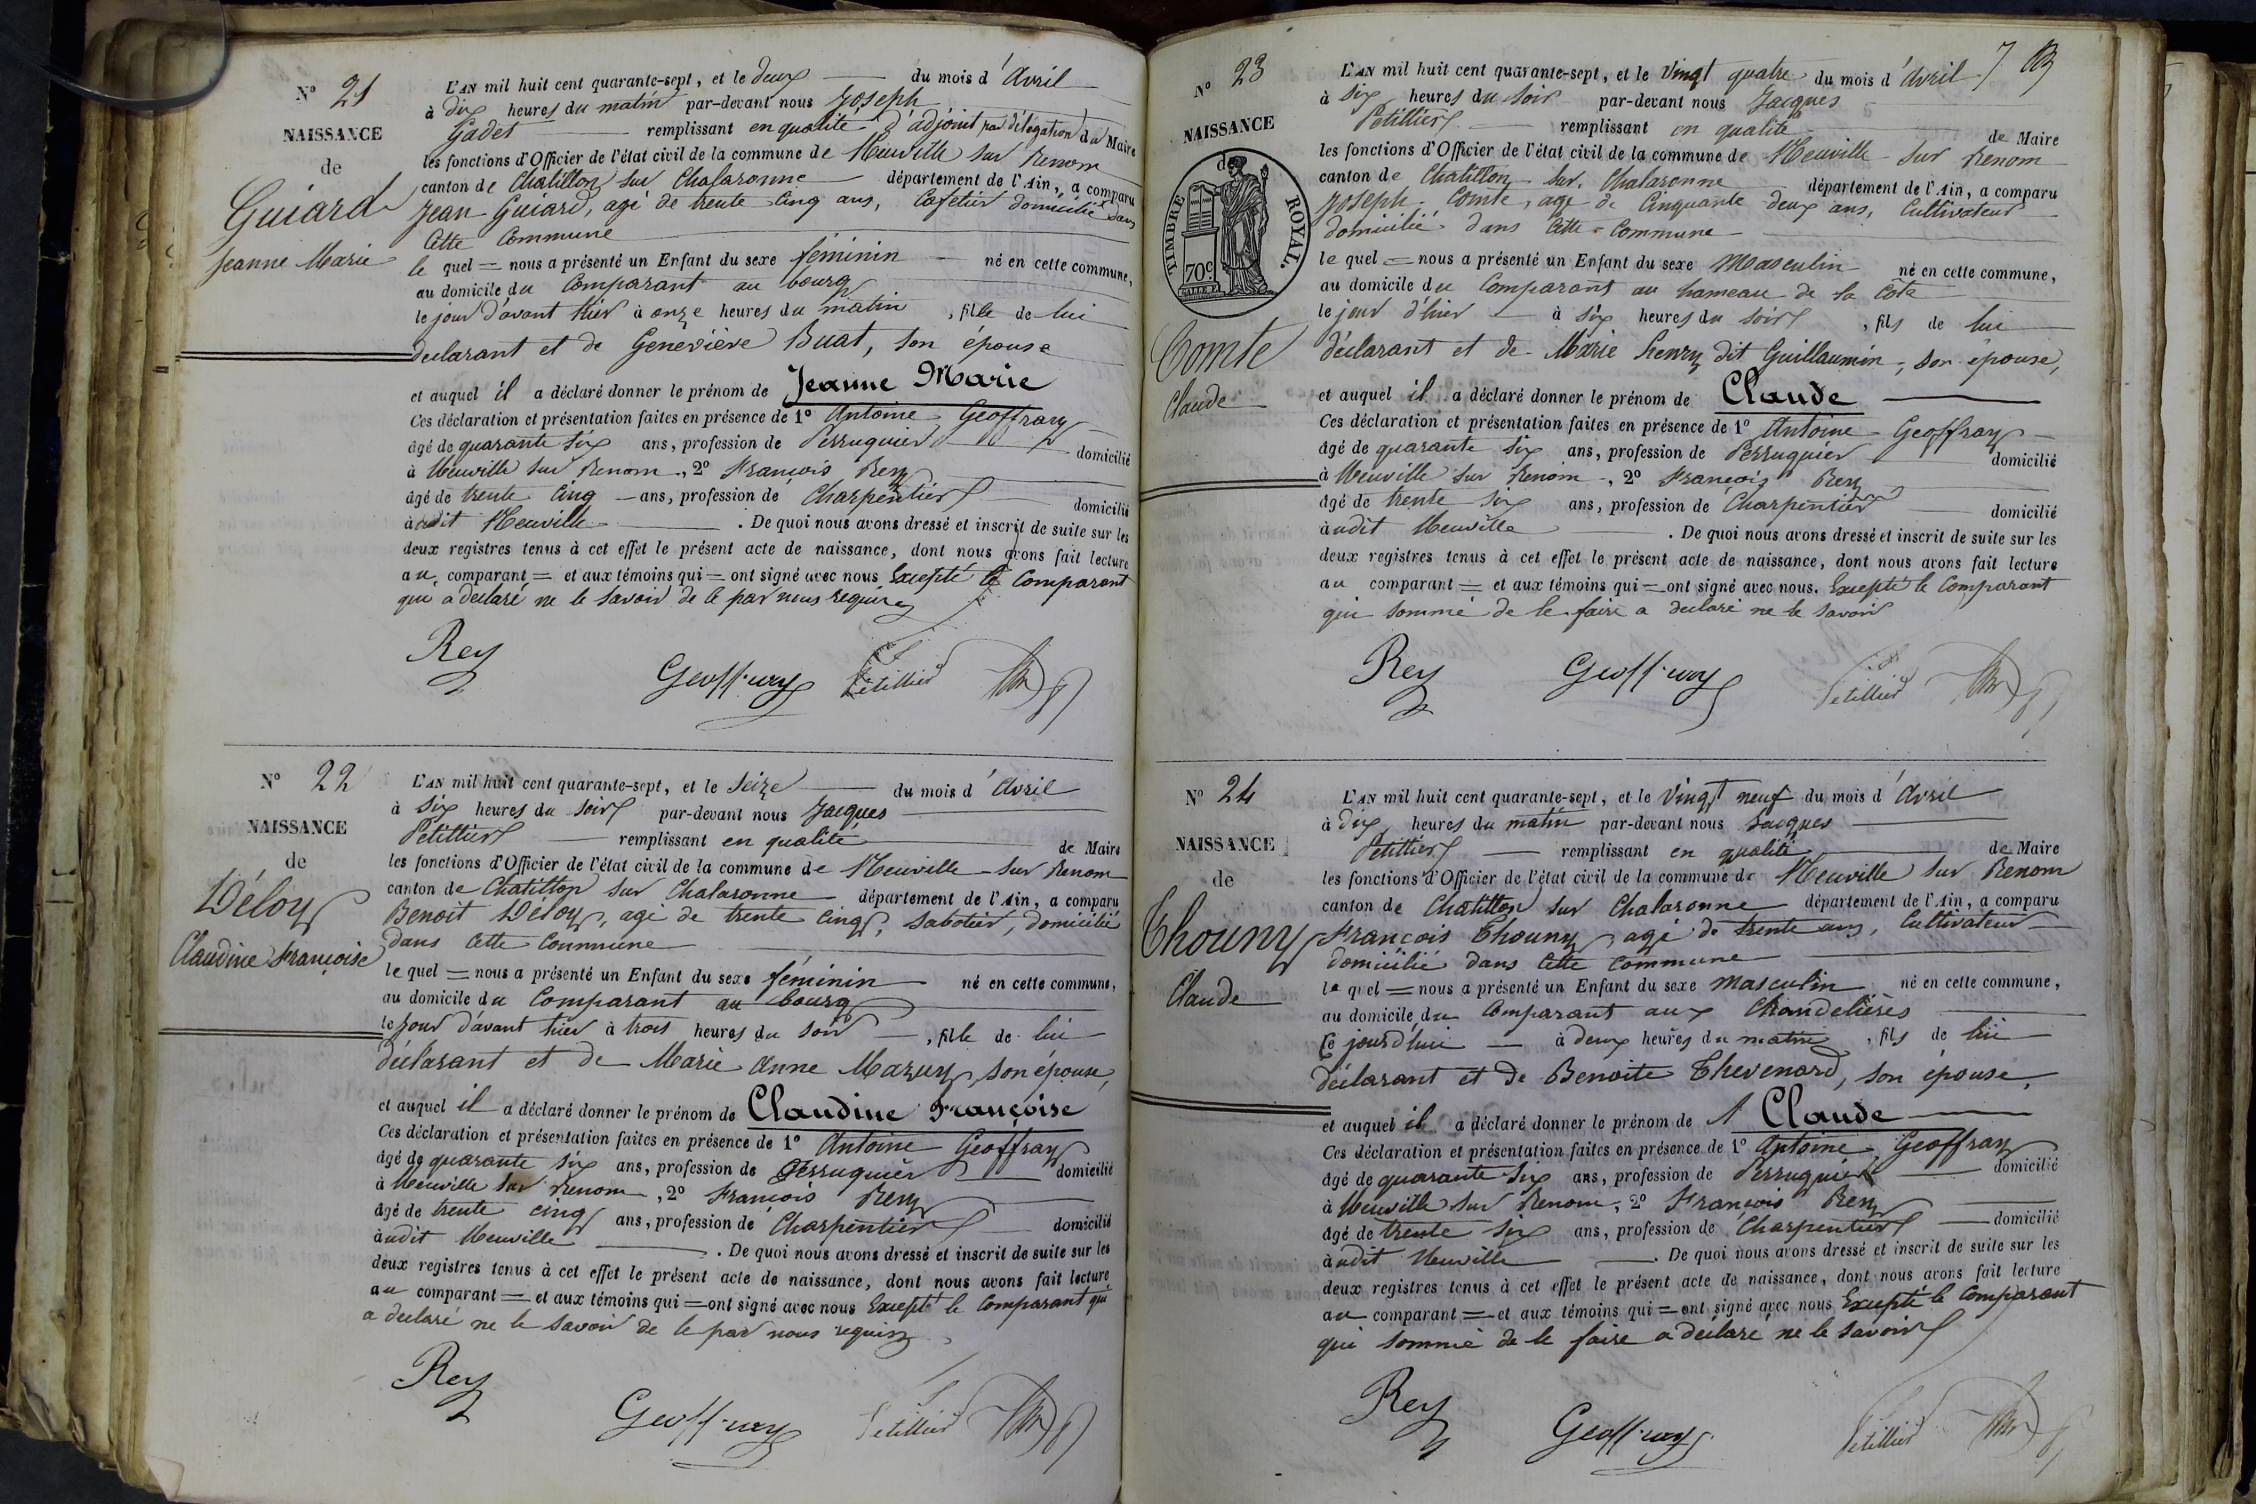 N° 21
NAISSANCE
de
Guiard
Jeanne Marie
L'AN mil huit cent quarante-sept, et le deux du mois d'Avril
à dix heures du matin par-devant nous Joseph
Gadet remplissant en qualité d'adjoint par délégation du Maire
les fonctions d'Officier de l'état civil de la commune de Neuville sur Renom
canton de Chatillon sur Chalaronne département de l'Ain, a comparu
Jean Guiard, agé de trente cinq ans, Cafetier domicilié dans
Cette Commune
le quel = nous a présenté un Enfant du sexe féminin né en cette commune,
au domicile du Comparant au bourg
le jour d'avant hier à onze heures du matin, fille de lui
déclarant et de Geneviève Buat, son épouse
et auquel il a déclaré donner le prénom de Jeanne Marie
Ces déclaration et présentation faites en présence de 1° Antoine Geoffray
âgé de quarante six ans, profession de Perruquier domicilié
à Neuville sur Renom, 2° François Rey
âgé de trente cinq ans, profession de Charpentier domicilié
àudit Neuville. De quoi nous avons dressé et inscrit de suite sur les
deux registres tenus à cet effet le présent acte de naissance, dont nous avons fait lecture
au comparant = et aux témoins qui = ont signé avec nous Excepté le Comparant
qui a déclaré ne le savoir de le par nous requis
Rey Geoffray Petillier
N° 22
NAISSANCE
de
Déloy
Claudine Françoise
L'AN mil huit cent quarante-sept, et le seize du mois d'Avril
à six heures du soir par-devant nous Jacques
Petillier remplissant en qualité de Maire
les fonctions d'Officier de l'état civil de la commune de Neuville sur Renom
canton de Chatillon sur Chalaronne département de l'Ain, a comparu
Benoit Déloy, agé de trente cinq, sabotier, domicilié
dans Cette Commune
le quel = nous a présenté un Enfant du sexe féminin né en cette commune,
au domicile du Comparant au bourg
le jour d'avant hier à trois heures du soir, fille de lui
déclarant et de Marie Anne Mazuy, son épouse,
et auquel il a déclaré donner le prénom de Claudine Françoise
Ces déclaration et présentation faites en présence de 1° Antoine Geoffray
âgé de quarante six ans, profession de Perruquier domicilié
à Neuville sur Renom, 2° François Rey
âgé de trente cinq ans, profession de Charpentier domicilié
àudit Neuville. De quoi nous avons dressé et inscrit de suite sur les
deux registres tenus à cet effet le présent acte de naissance, dont nous avons fait lecture
au comparant = et aux témoins qui = ont signé avec nous Excepté le Comparant qui
a déclaré ne le savoir de le par nous requis
Rey Geoffray Petillier
7
N° 23
NAISSANCE
de
TIMBRE ROYAL.
70c
Comte
Claude
L'AN mil huit cent quarante-sept, et le Vingt quatre du mois d'Avril
à six heures du soir par-devant nous Jacques
Petillier remplissant en qualité de Maire
les fonctions d'Officier de l'état civil de la commune de Neuville sur Renom
canton de Chatillon sur Chalaronne département de l'Ain, a comparu
Joseph Comte, agé de Cinquante deux ans, Cultivateur
domicilié dans Cette Commune
le quel = nous a présenté un Enfant du sexe Masculin né en cette commune,
au domicile du Comparant au hameau de la Cote
le jour d'hier à six heures du soir, fils de lui
déclarant et de Marie henry dit Guillaumin, son épouse,
et auquel il a déclaré donner le prénom de Claude
Ces déclaration et présentation faites en présence de 1° Antoine Geoffray
âgé de quarante six ans, profession de Perruquier domicilié
à Neuville sur Renom, 2° François Rey
âgé de trente six ans, profession de Charpentier domicilié
àudit Neuville. De quoi nous avons dressé et inscrit de suite sur les
deux registres tenus à cet effet le présent acte de naissance, dont nous avons fait lecture
au comparant = et aux témoins qui = ont signé avec nous. Excepté le Comparant
qui sommé de le faire a déclaré ne le savoir
Rey Geoffray Petillier
N° 24
NAISSANCE
de
Thouny
Claude
L'AN mil huit cent quarante-sept, et le Vingt neuf du mois d'Avril
à dix heures du matin par-devant nous Jacques
Petillier remplissant en qualité de Maire
les fonctions d'Officier de l'état civil de la commune de Neuville sur Renom
canton de Chatillon sur Chalaronne département de l'Ain, a comparu
François Thouny, agé de trente ans, Cultivateur
domicilié dans Cette Commune
le quel = nous a présenté un Enfant du sexe masculin né en cette commune,
au domicile du Comparant aux Chandelières
Ce jourd'hui à deux heures du matin, fils de lui
déclarant et de Benoite Thevenard, son épouse,
et auquel il a déclaré donner le prénom de Claude
Ces déclaration et présentation faites en présence de 1° Antoine Geoffray
âgé de quarante six ans, profession de Perruquier domicilié
à Neuville sur Renom, 2° François Rey
âgé de trente six ans, profession de Charpentier domicilié
àudit Neuville. De quoi nous avons dressé et inscrit de suite sur les
deux registres tenus à cet effet le présent acte de naissance, dont nous avons fait lecture
au comparant = et aux témoins qui = ont signé avec nous Excepté le Comparant
qui sommé de le faire a déclaré ne le savoir
Rey Geoffray Petillier